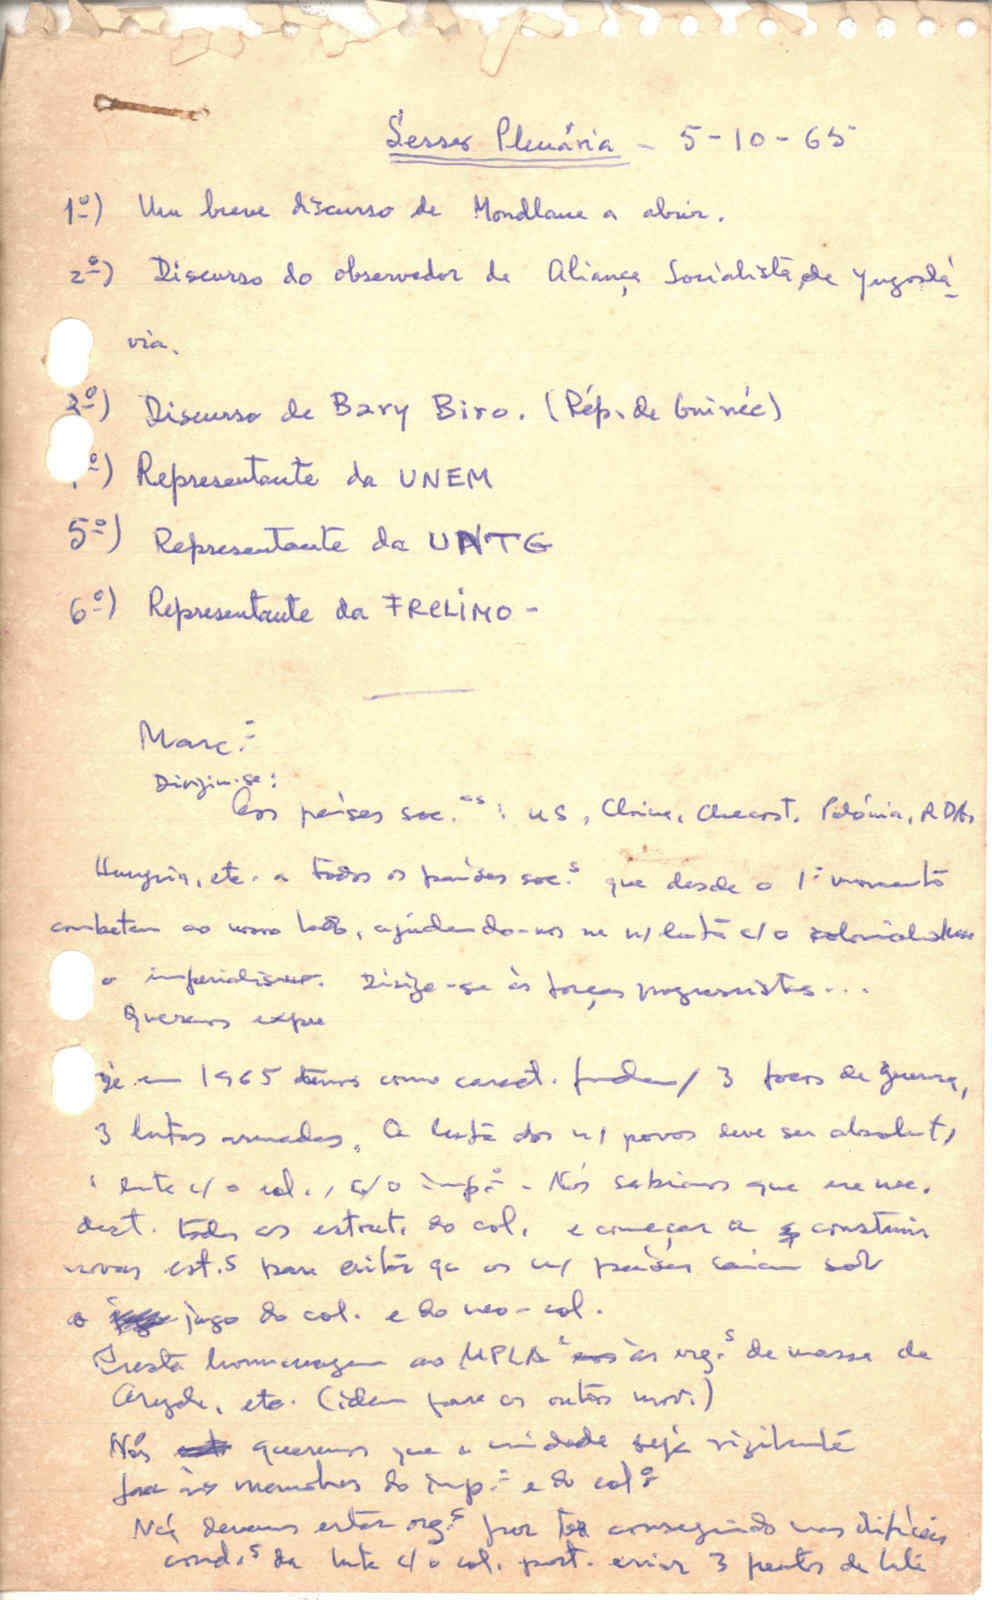 Sessão Plenária - 5-10-65
1º) Um breve discurso de Mondlane a abrir.
2º) Discurso do observador da Aliança Socialista da Yugoslá-
via.
3º) Discurso de Bary Biro. (Rép. de Guinée)
º) Representante da UNEM
5º) Representante da UNTG
6º) Representante da FRELIMO -
Marc.º
Dirigiu-se:
Aos países soc.as: US, China, Checosl. Polónia, RDA,
Hungria, etc. a todos os países soc.s que desde o 1º momento
combatem ao nosso lado, ajudando-nos na n/ luta c/o colonialismo
o imperialismo. Dirige-se às forças progressistas...
Queremos expre
Já em 1965 temos como caract. fundam/ 3 focos de guerra,
3 lutas armadas. A luta dos n/ povos deve ser absolut/
luta c/o col., c/o imp.º - Nós sabíamos que era nec.
dest. todas as estrut. do col. e começar a construir
novas est.s para evitar qe os n/ países caiam sob
o jugo do col. e do neo-col.
Presta homenagem ao MPLA às org.s de massa de
Angola, etc. (idem para os outros mov.)
Nós queremos que a unidade seja vigilante
face às manobras do imp.º e do colº
Nós devemos estar org.s por ter conseguido nas difíceis
cond.s da luta c/o col. port. criar 3 frentes de luta